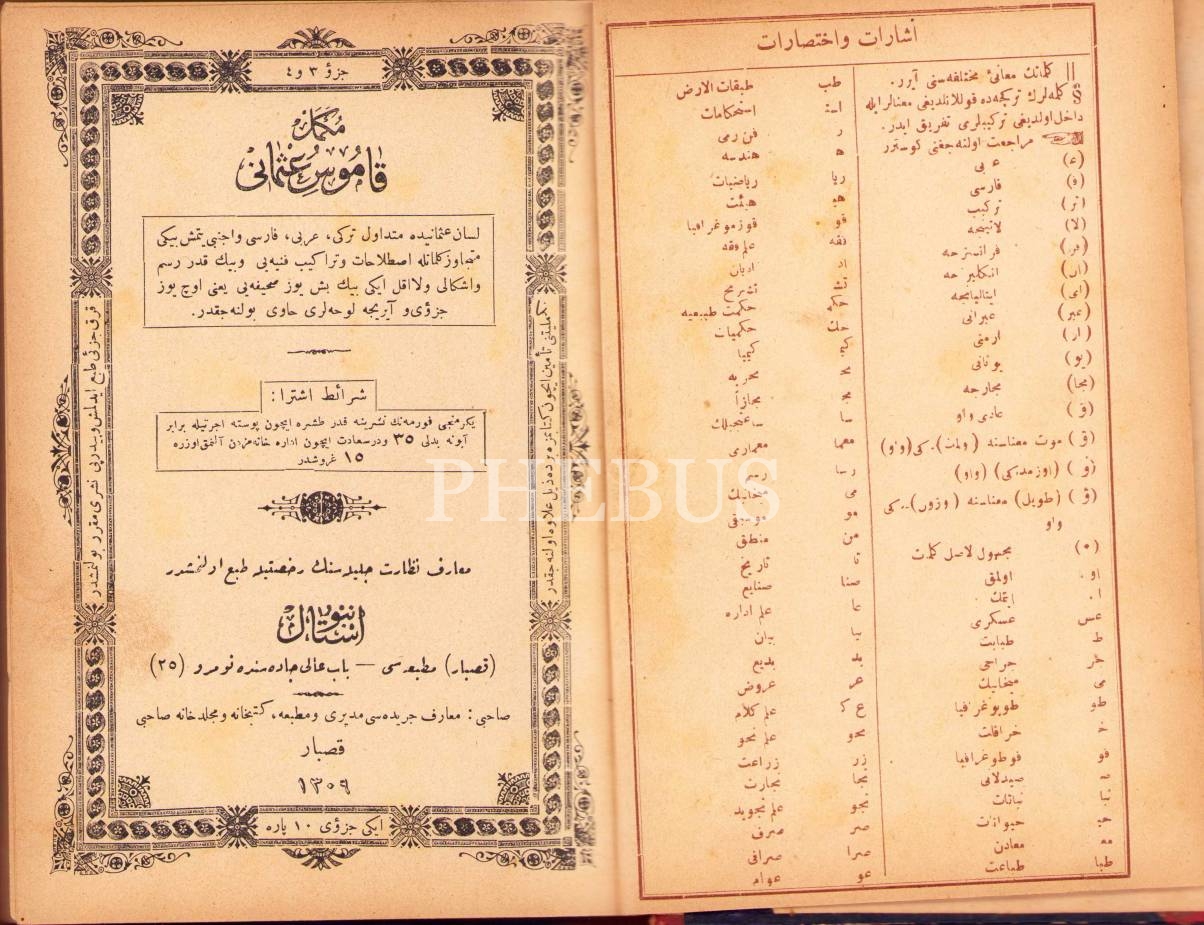 جزؤ ٣ و ٤
مكمل
قاموس عثمانى
لسان عثمانيده متداول تركى، عربى، فارسى واجنبى يتمش بيكى
متجاوز كلماتله اصطلاحات وتراكيب فنيه يى وبيك قدر رسم
واشكالى ولااقل ايكى بيك بش يوز صحيفه يى يعنى اوچ يوز
جزؤى و آيريجه لوحه لرى حاوى بولنه جقدر.
شرائط اشترا:
يكرمنجى فورمه نك نشرينه قدر طشره ايچون پوسته اجرتيله برابر
آبونه بدلى ٣٥ ودرسعادت ايچون اداره خانه مزدن آلنمق اوزره
١٥ غروشدر
معارف نظارت جليله سنك رخصتيله طبع اولنمشدر
استانبول
(قصبار) مطبعه سى — باب عالى جاده سنده نومرو (٢٥)
صاحبى: معارف جريده سى مديرى ومطبعه، كتبخانه ومجلدخانه صاحبى
قصبار
١٣٠٩
ايكى جزؤى ١٠ پاره
فرق جزئى طبع ايدلمش وپيدرپى نشرى مقرر بولنمشدر
تكمليتنى تأمين ايچون كتابمزه برده ذيل علاوه اولنه جقدر
PHEBUS
اشارات واختصارات
|| كلماتك معانئ مختلفه سنى آيرر.
§ كلمه لرك تركجه ده قوللانلديغى معنالرايله
داخل اولديغى تركيبلرى تفريق ايدر.
مراجعت اولنه جغنى كوسترر
(ع) عربى
(ف) فارسى
(تر) تركيب
(لا) لاتينجه
(فر) فرانسزجه
(ان) انكليزجه
(اى) ايتاليانجه
(عبر) عبرانى
(ار) ارمنى
(يو) يونانى
(مجا) مجارجه
(و) عادى واو
(ۏ) موت معناسنه (ولمك)ـكى (واو)
(و) (اوزمه‌كى) (واو)
(ۏ) (طويل) معناسنه (وزون)ـكى
واو
(٥) مجهول لاصل كلمات
او. اولمق
ا. ايتمك
عس عسكرى
ط طبابت
جر جراحى
مى ميخانيك
طو طوپوغرافيا
خ خرافات
فو فوطوغرافيا
صـ صيدلانى
نبا نباتات
حيـ حيوانات
معـ معادن
طبا طباعت
طب طبقات الارض
است استحكامات
ر فن رمى
هـ هندسه
ريا رياضيات
هيـ هيئت
قو قوزموغرافيا
فقه علم فقه
اد اديان
تشـ تشريح
حكمـ حكمت طبيعيه
حك حكميات
كيـ كيميا
بحـ بحريه
مجـ مجازاً
سا ساعتجيلك
معما معمارى
رسا رسم
مى ميخانيك
مو موسيقى
من منطق
تا تاريخ
صنا صنايع
عا علم اداره
بيا بيان
بد بديع
عر عروض
ع ك علم كلام
نحو علم نحو
زر زراعت
تجا تجارت
تجو علم تجويد
صر صرف
صرا صرافى
عو عوام